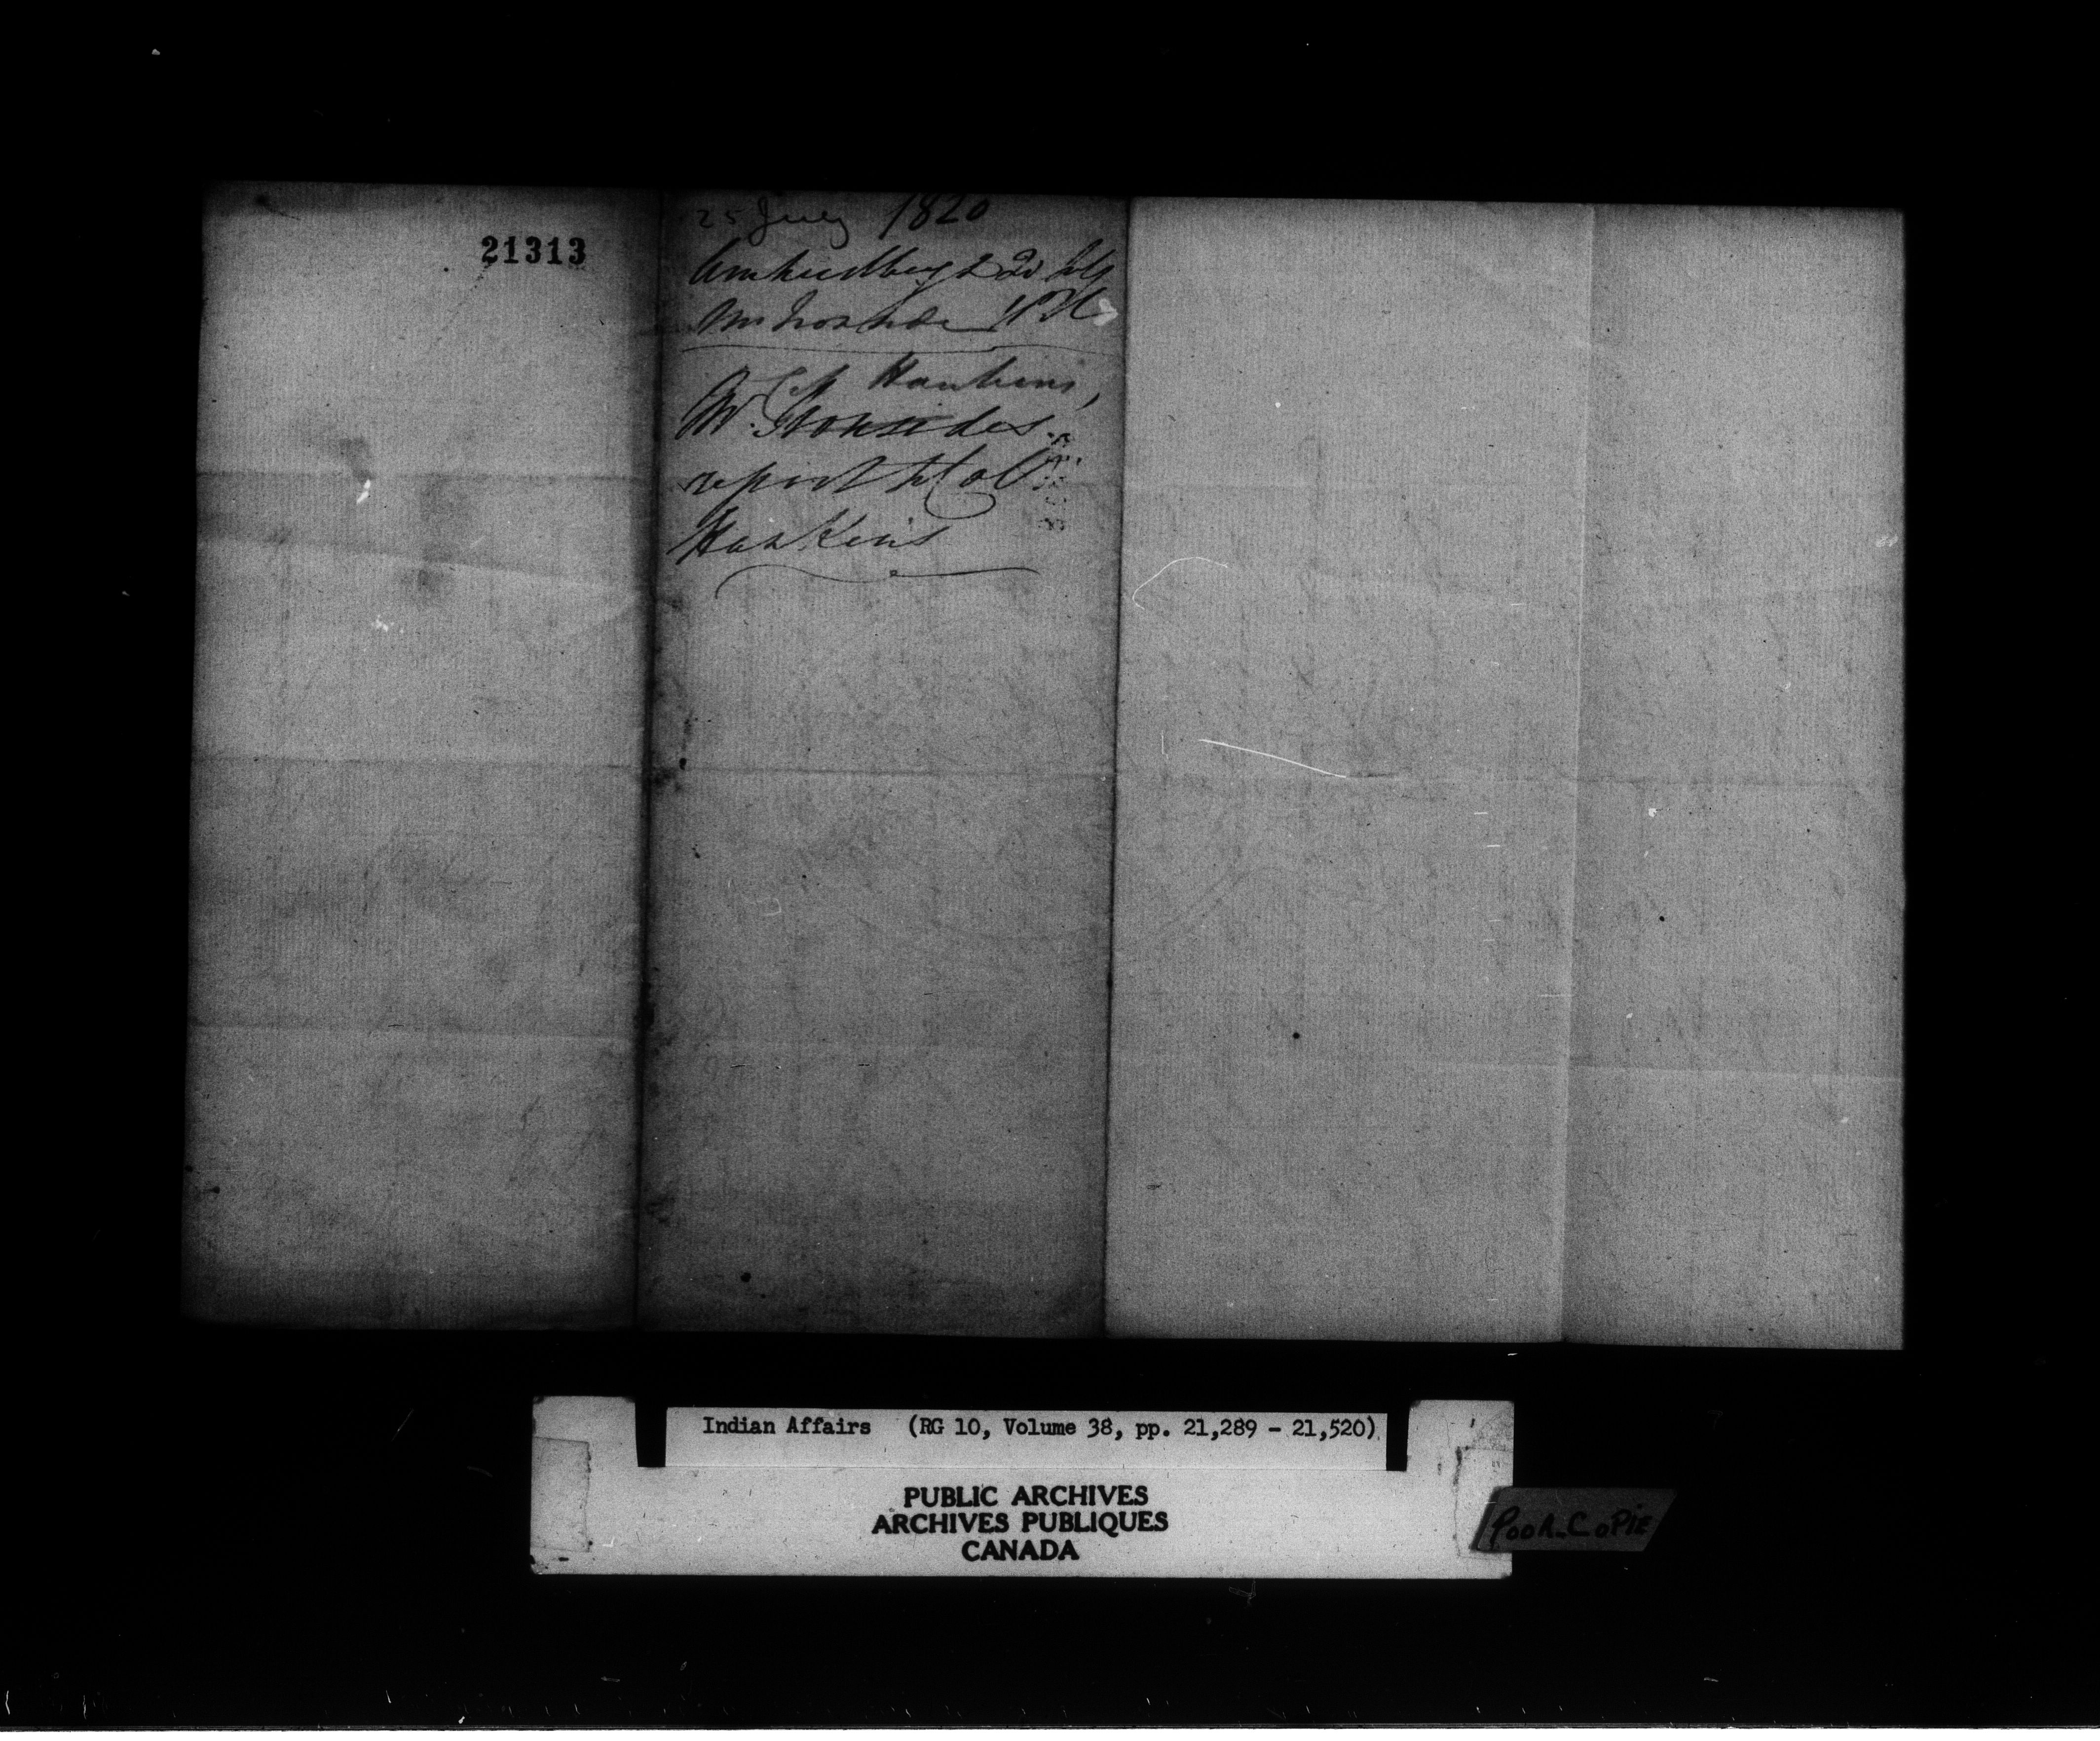 21313
25 July 1820
Amherstburg 25 July
Mr Ironside
Col Hawkins,
Mr. Ironsides
report to Col.
Hawkins
Indian Affairs (RG 10, Volume 38, pp. 21,289 - 21,520)
PUBLIC ARCHIVES
ARCHIVES PUBLIQUES
CANADA
POOR COPIE